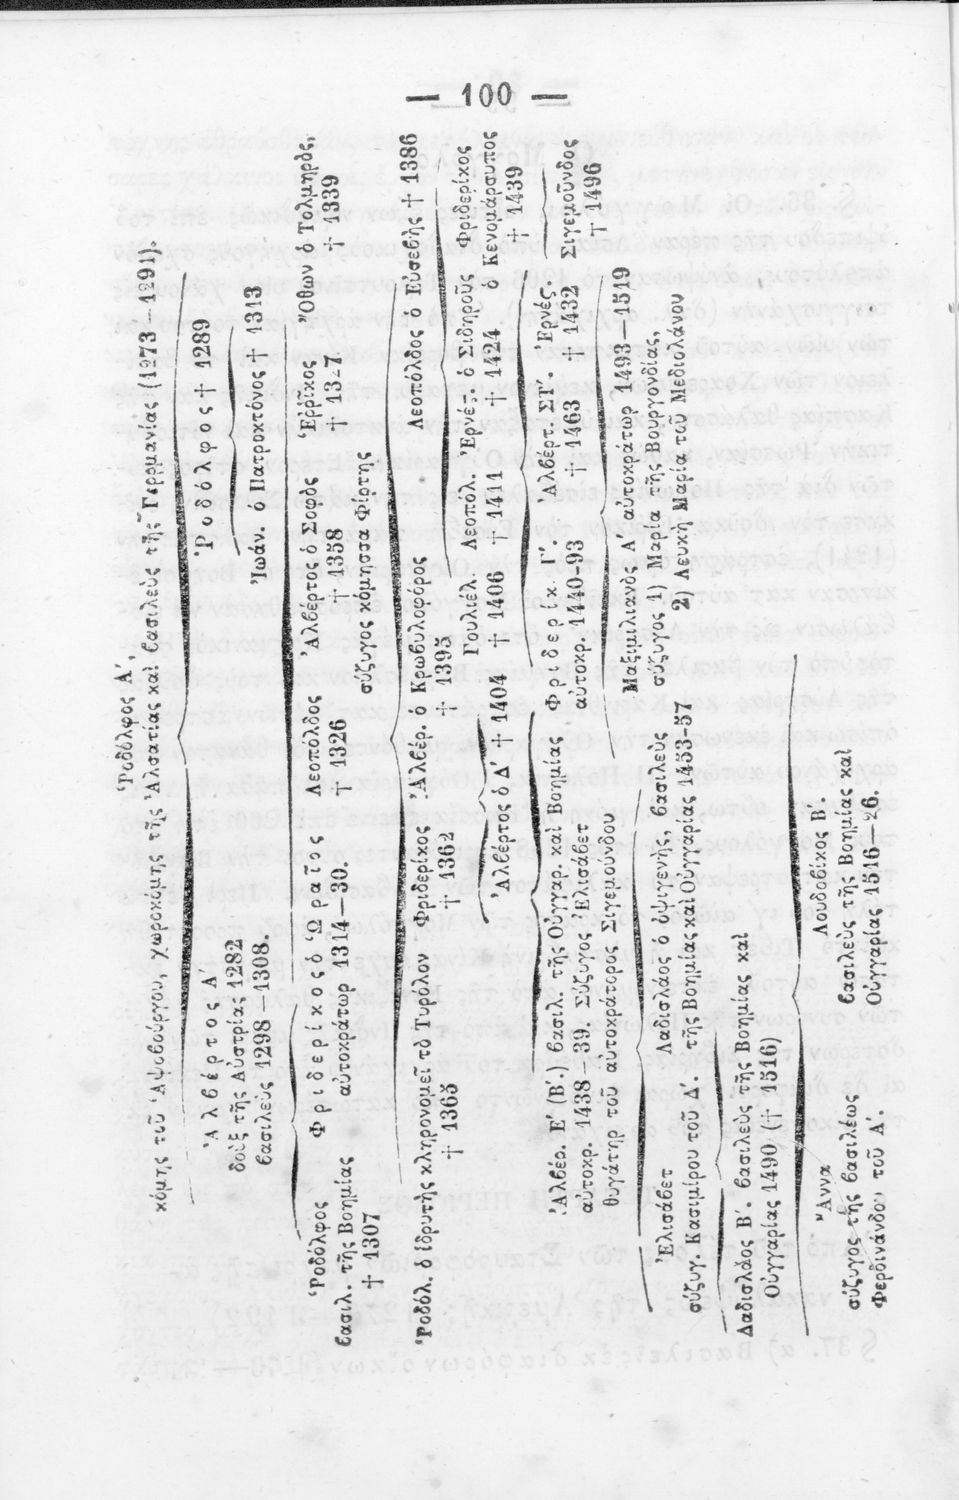 — 100 —
Ῥοδόλφος Α΄.
κόμης τοῦ Ἁψβούργου, χωροκόμης τῆς Ἀλσατίας καὶ βασιλεὺς τῆς Γερμανίας (1273—1291).
Ἀλβέρτος Α΄ Ῥοδόλφος † 1289
δοὺξ τῆς Αὐστρίας 1282
βασιλεὺς 1298—1308. Ἰωάν. ὁ Πατροκτόνος † 1313
Ῥοδόλφος Φριδερίκος ὁ Ὡραῖος Λεοπόλδος Ἀλβέρτος ὁ Σοφός Ἐρρῖκος Ὄθων ὁ Τολμηρός,
βασιλ. τῆς Βοημίας αὐτοκράτωρ 1314—30. † 1326 † 1358 † 1327 † 1339
† 1307 σύζυγος κόμησσα Φίρτης
Ῥοδόλ. ὁ ἱδρυτὴς κληρονομεῖ τὸ Τυρόλον Φριδερίκος Ἀλβέρ. Κρωβυλοφόρος Λεοπόλδος ὁ Εὐσεβὴς † 1386
† 1365 † 1362 † 1395 Γουλιέλ. Λεοπολ. Ἐρνέσ. ὁ σιδηροῦς Φριδερίκος
Ἀλβέρτος ὁ Δ΄ † 1404 † 1406 † 1411 † 1424 ὁ Κενομάρσυπος
† 1439
Ἀλβέρ. Ε (Β΄.) βασιλ. τῆς Οὑγγαρ. καὶ Βοημίας Φριδερίκ. Ἀλβέρτ. ΣΤ΄. Σιγισμοῦνδος
αὐτοκρ. 1438—39. Σύζυγος Ἐλισάβετ αὐτοκρ. 1440-93 † 1463 † 1432 † 1496
θυγάτηρ τοῦ αὐτοκράτορος Σιγισμούνδου
Μαξιμιλ. ὁ Α΄. αὐτοκράτωρ 1493—1519
Ἐλισάβετ Λαδισλάος ὁ ὀψιγενὴς, βασιλεὺς σύζυγος 1) Μαρία τῆς Βουργονδίας.
σύζυγ. Κασιμίρου τοῦ Δ΄. τῆς Βοημίας καὶ Οὑγγαρίας 1453-57 2) Λευκὴ Μαρία τοῦ Μεδιολάνου
Λαδισλάος Β΄. βασιλεὺς τῆς Βοημίας καὶ
Οὑγγαρίας 1490 († 1516)
Ἄννα Λουδοβῖκος Β΄.
σύζυγος τῆς βασιλέως βασιλεὺς τῆς Βοημίας καὶ
Φερδινάνδου τοῦ Α΄. Οὑγγαρίας 1516—26.